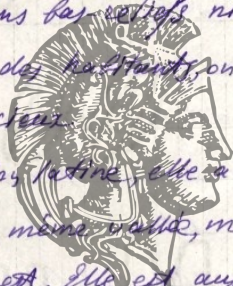 bas reliefs
des habitants, on
cieux
latine, elle a
même vallée, m
est. Elle est au